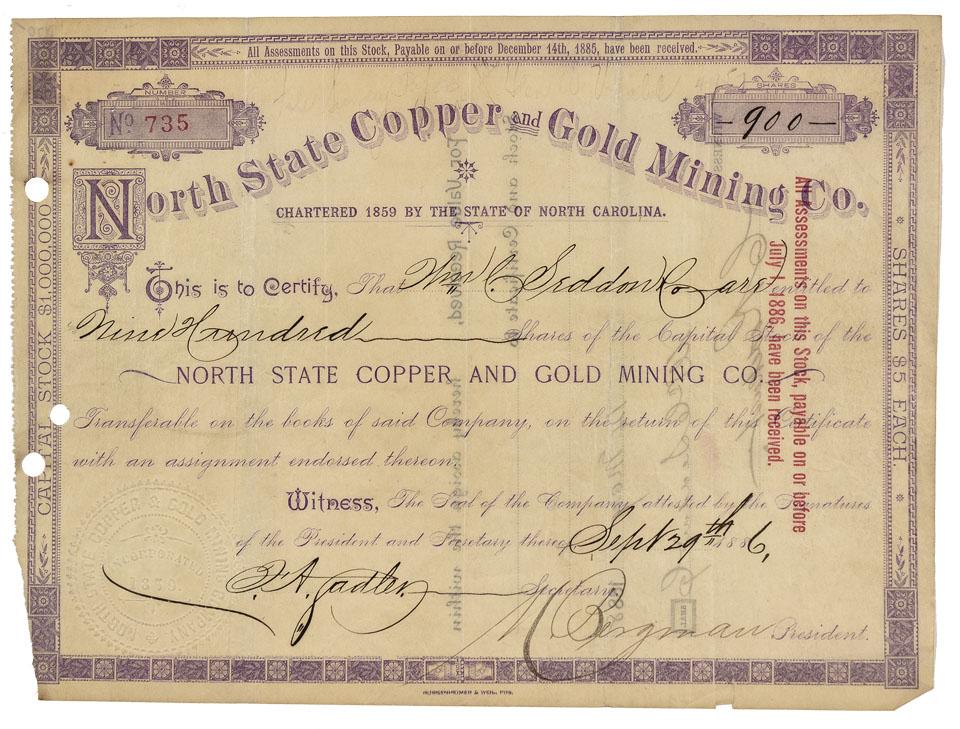 All Assessments on this Stock, Payable on or before December 14th, 1885, have been received.
NUMBER
No 735
SHARES
900
North State Copper and Gold Mining Co.
CHARTERED 1859 BY THE STATE OF NORTH CAROLINA.
This is to Certify, That Wm C. Seddon & Co. are entitled to
Nine Hundred Shares of the Capital Stock of the
NORTH STATE COPPER AND GOLD MINING CO.
Transferable on the books of said Company, on the return of this Certificate
with an assignment endorsed thereon.
Witness, The Seal of the Company attested by the Signatures
of the President and Secretary thereof Sept 29th 1886,
Secretary.
Bergman President.
CAPITAL STOCK $1,000,000
SHARES $5 EACH.
All Assessments on this Stock, payable on or before
July 1, 1886, have been received.
INCORPORATED
1859